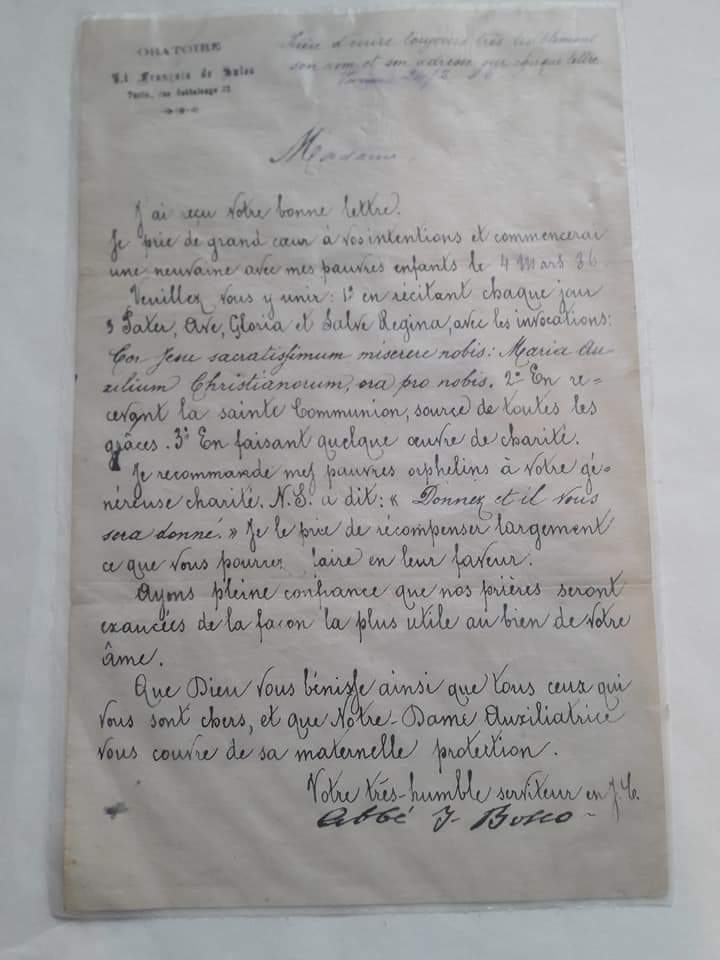 ORATOIRE
St François de Sales
Turin, rue Cottolengo 32.
Prière d'écrire toujours très lisiblement
son nom et son adresse sur chaque lettre
Madame
J'ai reçu Votre bonne lettre.
Je prie de grand cœur à vos intentions et commencerai
une neuvaine avec mes pauvres enfants le 4 Mars 86
Veuillez vous y unir: 1º en récitant chaque jour
3 Pater, Ave, Gloria et Salve Regina, avec les invocations:
Cor Jesu sacratissimum miserere nobis: Maria Au-
xilium Christianorum, ora pro nobis. 2º En re-
cevant la sainte Communion, source de toutes les
grâces. 3º En faisant quelque œuvre de charité.
Je recommande mes pauvres orphelins à Votre gé-
néreuse charité. N.S. a dit: « Donnez et il vous
sera donné. » Je le prie de récompenser largement
ce que vous pourrez faire en leur faveur.
Ayons pleine confiance que nos prières seront
exaucées de la façon la plus utile au bien de Votre
âme.
Que Dieu Vous bénisse ainsi que tous ceux qui
vous sont chers, et que Notre-Dame Auxiliatrice
vous couvre de sa maternelle protection.
Votre très-humble serviteur en J.C.
Abbé J. Bosco